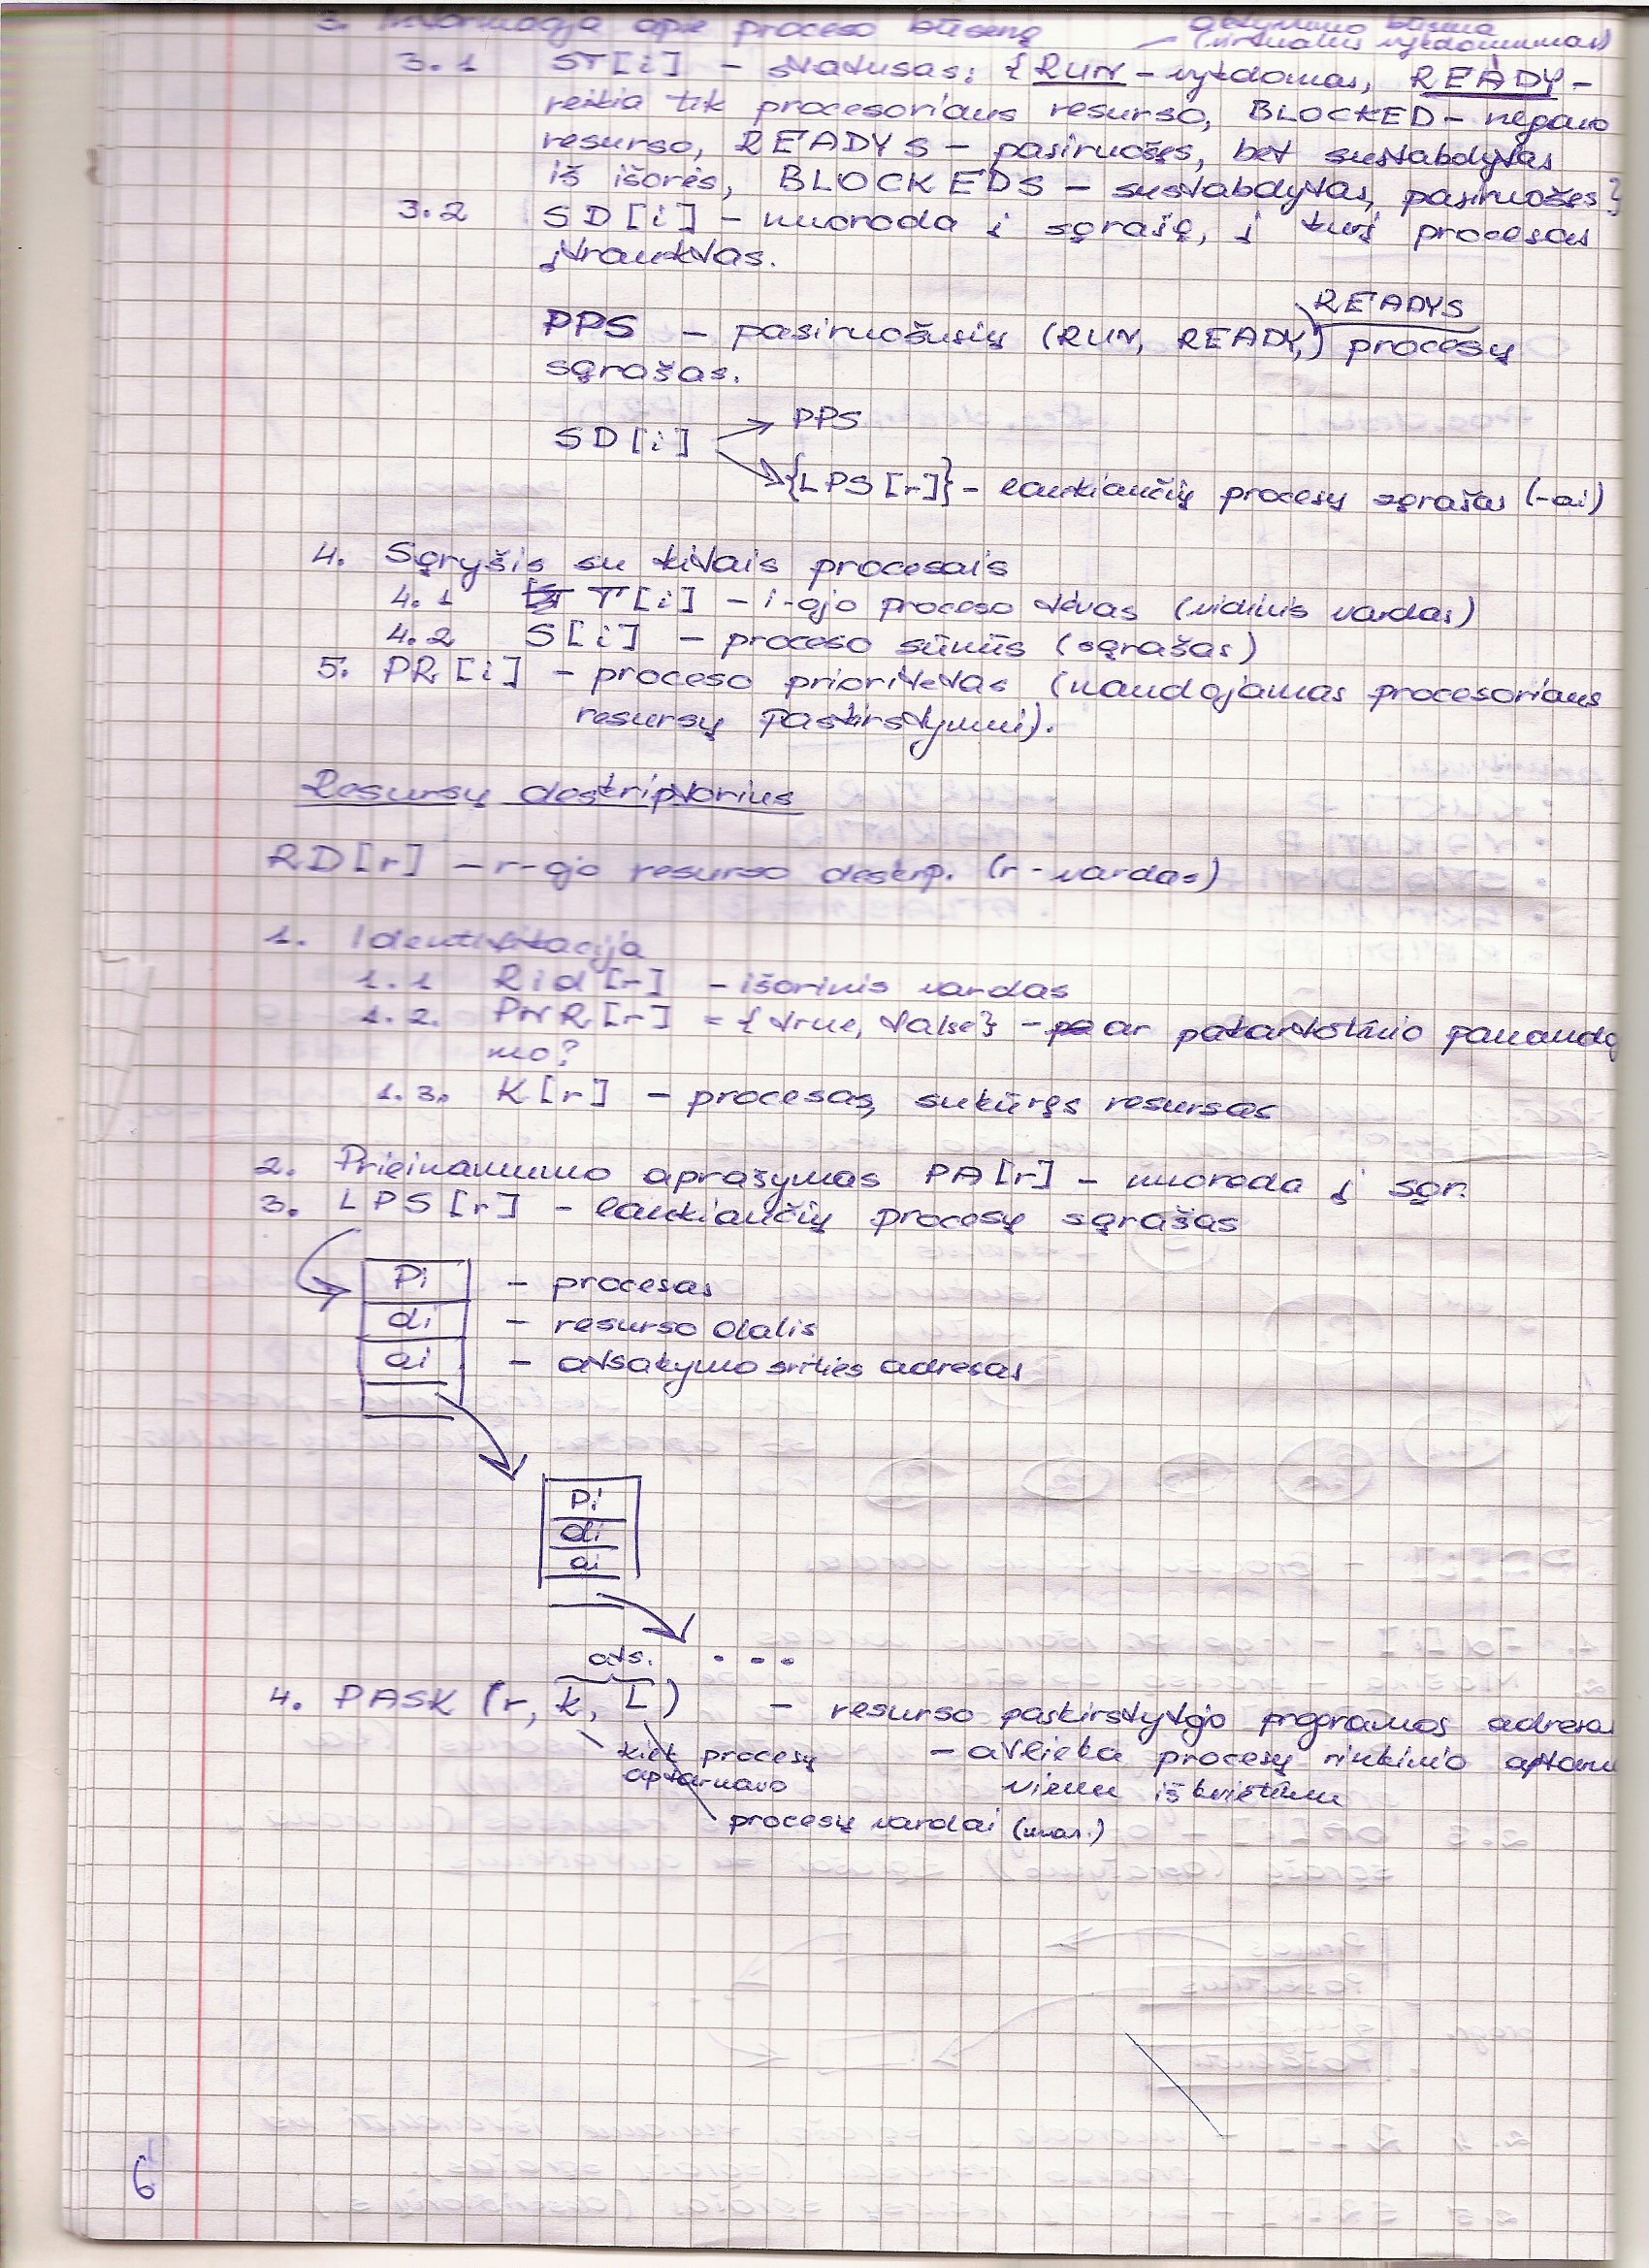 3. Informacija apie proceso būseną
aktyvumo būsena
(virtualus vykdomumas)
3.1 ST[i] – statusas: {RUN – vykdomas, READY –
reikia tik procesoriaus resurso, BLOCKED – negavo
resurso, READYS – pasiruošęs, bet sustabdytas
iš išorės, BLOCKEDS – sustabdytas, pasiruošęs}
3.2 SD[i] – nuoroda į sąrašą, į kurį procesas
įtrauktas.
READYS
PPS – pasiruošusių (RUN, READY,) procesų
sąrašas.
PPS
SD[i]
{LPS[r]} – laukiančių procesų sąrašas (-ai)
4. Sąryšis su kitais procesais
4.1 T[i] – i-ojo proceso tėvas (vidinis vardas)
4.2 S[i] – proceso sūnūs (sąrašas)
5. PR[i] – proceso prioritetas (naudojamas procesoriaus
resursų paskirstymui).
Resursų deskriptorius
RD[r] – r-ojo resurso deskrip. (r – vardas)
1. Identifikacija
1.1 Rid[r] – išorinis vardas
1.2. PNR[r] = {true, false} – ar pakartotinio panaudo
mo?
1.3. K[r] – procesas, sukūręs resursas
2. Prieinamumo aprašymas PA[r] – nuoroda į sąr.
3. LPS[r] – laukiančių procesų sąrašas
Pi – procesas
di – resurso dalis
ai – atsakymo srities adresas
Pi
di
ai
ats. . . .
4. PASK (r, k, L) – resurso paskirstytojo programos adresa
kiek procesų – atlieka procesų rinkinio aptarn
aptarnavo vienu iškvietimu
procesų vardai (mas.)
6